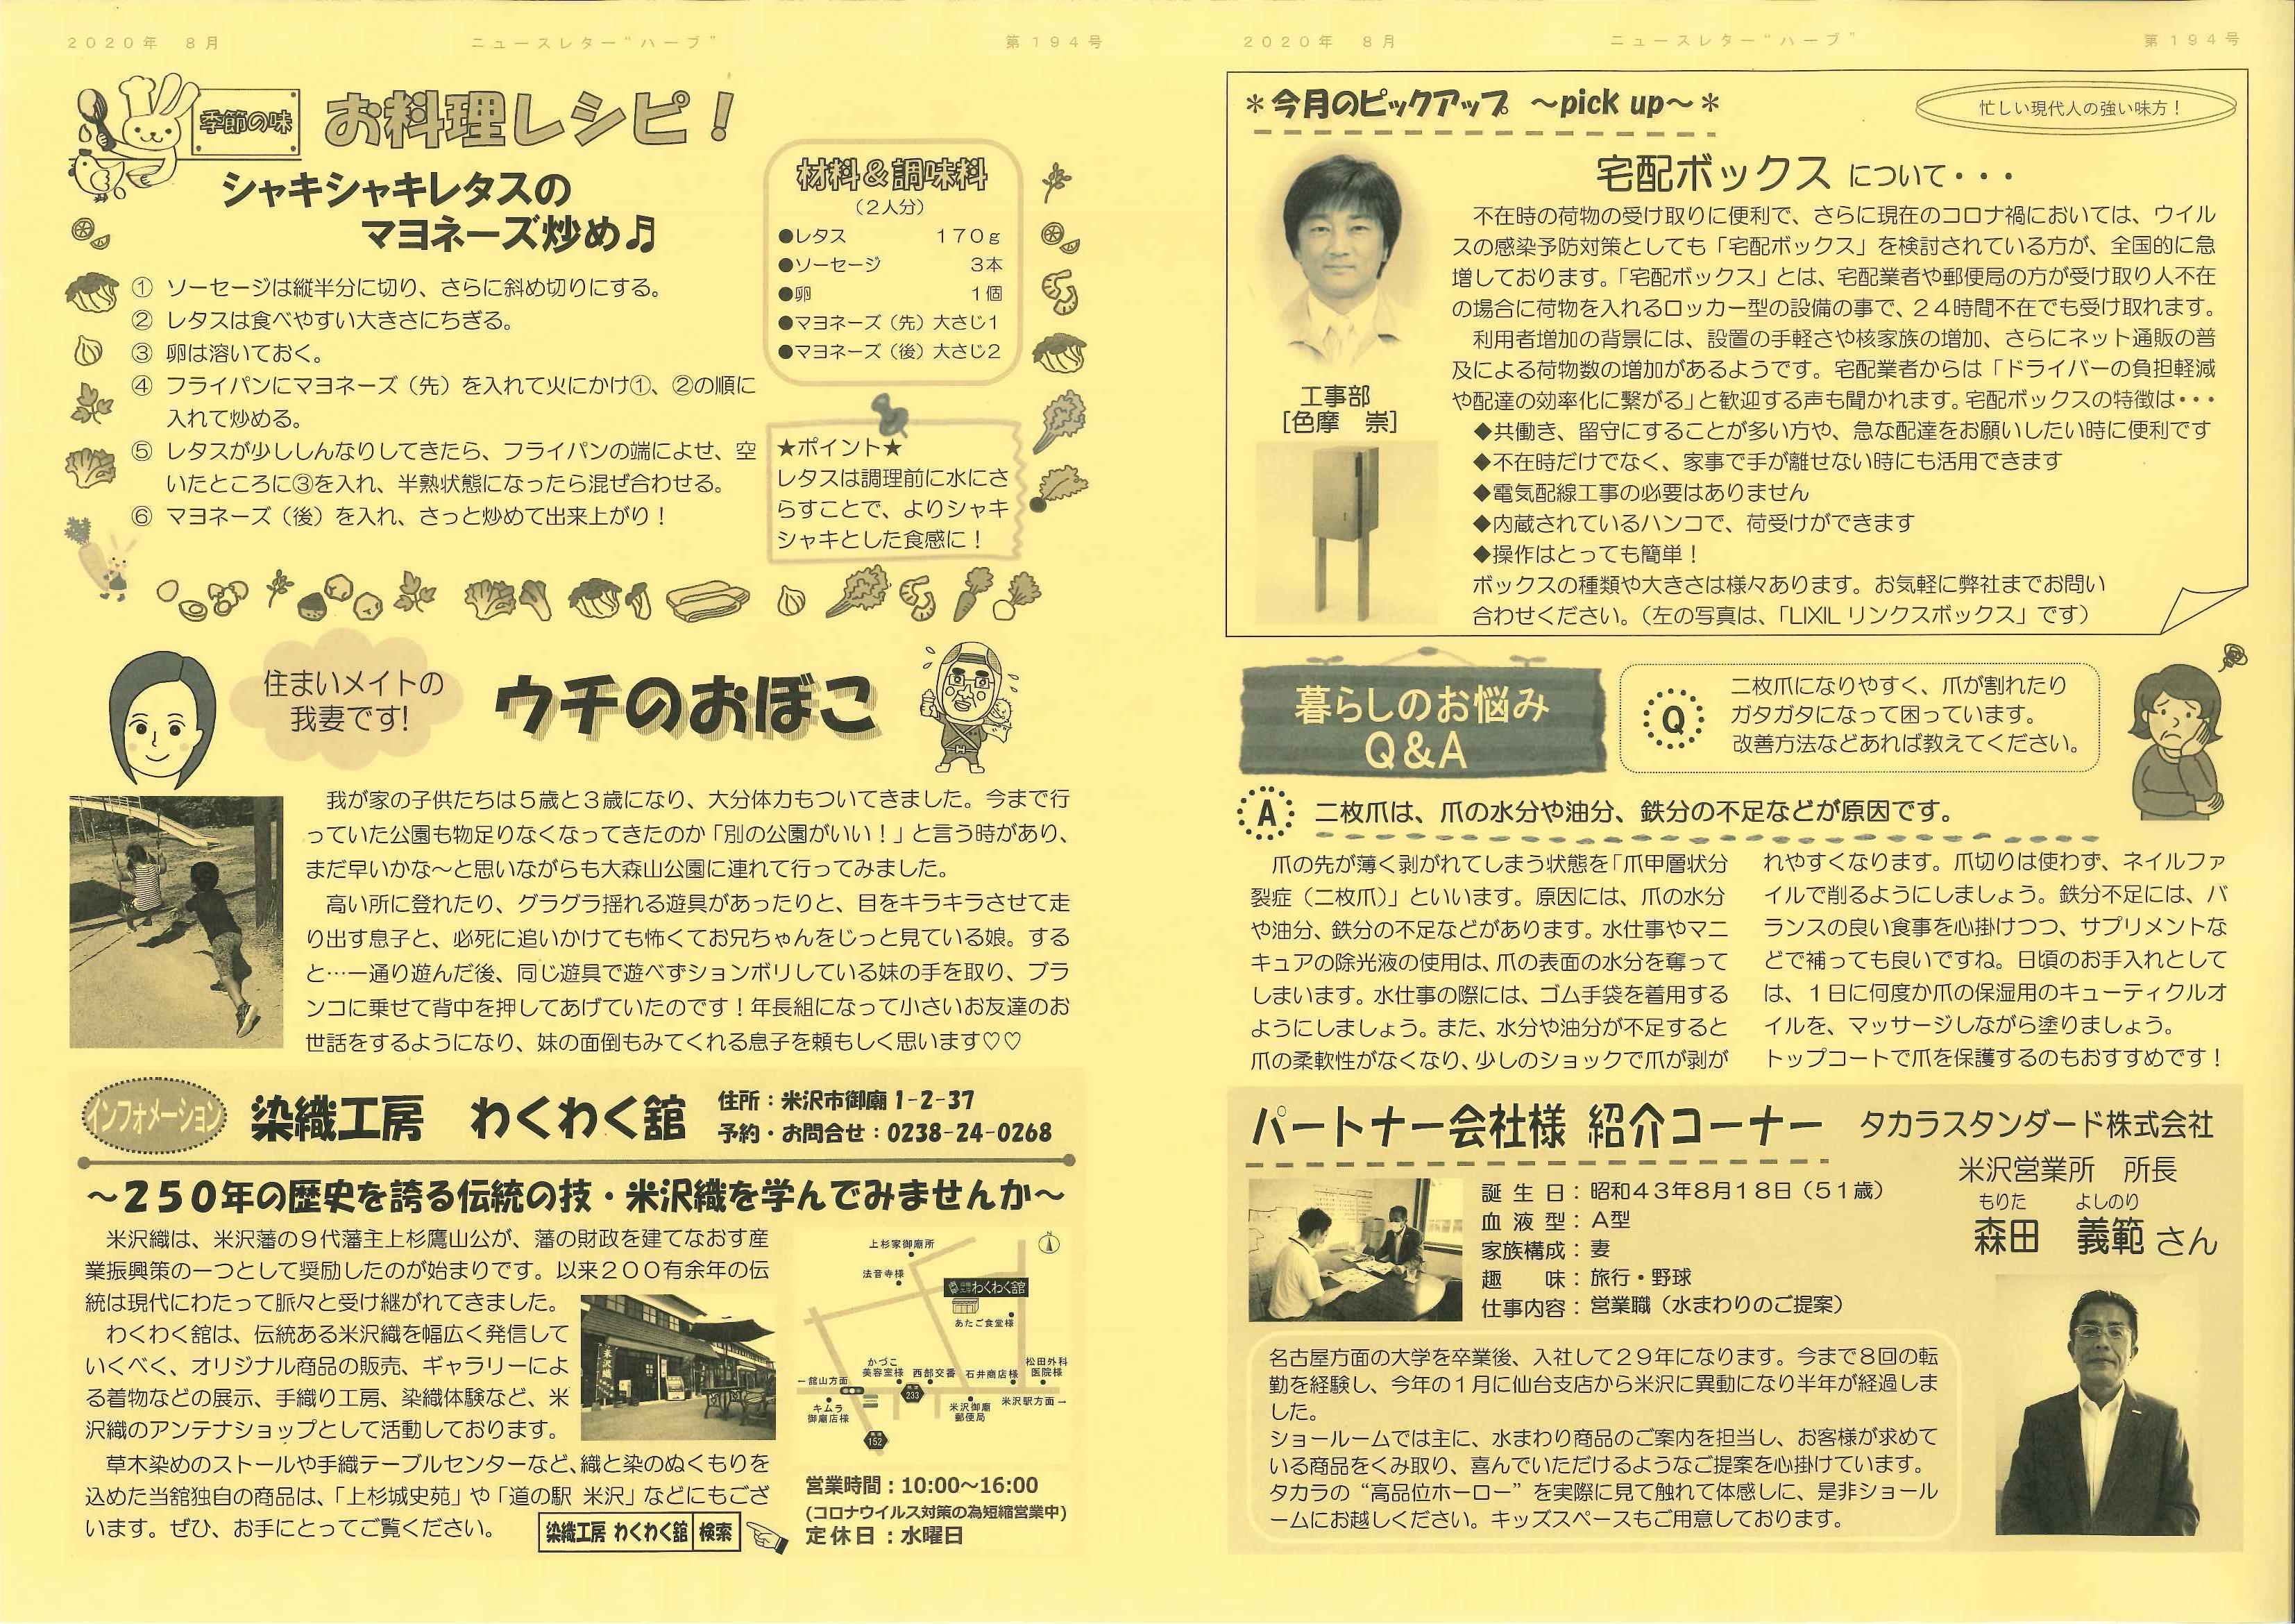 2020年 8月 ニュースレター“ハーブ” 第194号
季節の味
お料理レシピ！
シャキシャキレタスの
マヨネーズ炒め♬
① ソーセージは縦半分に切り、さらに斜め切りにする。
② レタスは食べやすい大きさにちぎる。
③ 卵は溶いておく。
④ フライパンにマヨネーズ（先）を入れて火にかけ①、②の順に
入れて炒める。
⑤ レタスが少ししんなりしてきたら、フライパンの端によせ、空
いたところに③を入れ、半熟状態になったら混ぜ合わせる。
⑥ マヨネーズ（後）を入れ、さっと炒めて出来上がり！
材料＆調味料
（2人分）
●レタス 170g
●ソーセージ 3本
●卵 1個
●マヨネーズ（先）大さじ1
●マヨネーズ（後）大さじ2
★ポイント★
レタスは調理前に水にさ
らすことで、よりシャキ
シャキとした食感に！
住まいメイトの
我妻です!
ウチのおぼこ
我が家の子供たちは5歳と3歳になり、大分体力もついてきました。今まで行
っていた公園も物足りなくなってきたのか「別の公園がいい！」と言う時があり、
まだ早いかな～と思いながらも大森山公園に連れて行ってみました。
高い所に登れたり、グラグラ揺れる遊具があったりと、目をキラキラさせて走
り出す息子と、必死に追いかけても怖くてお兄ちゃんをじっと見ている娘。する
と…一通り遊んだ後、同じ遊具で遊べずションボリしている妹の手を取り、ブラ
ンコに乗せて背中を押してあげていたのです！年長組になって小さいお友達のお
世話をするようになり、妹の面倒もみてくれる息子を頼もしく思います♡♡
インフォメーション
染織工房 わくわく舘
住所：米沢市御廟1-2-37
予約・お問合せ：0238-24-0268
～250年の歴史を誇る伝統の技・米沢織を学んでみませんか～
米沢織は、米沢藩の9代藩主上杉鷹山公が、藩の財政を建てなおす産
業振興策の一つとして奨励したのが始まりです。以来200有余年の伝
統は現代にわたって脈々と受け継がれてきました。
わくわく舘は、伝統ある米沢織を幅広く発信して
いくべく、オリジナル商品の販売、ギャラリーによ
る着物などの展示、手織り工房、染織体験など、米
沢織のアンテナショップとして活動しております。
草木染めのストールや手織テーブルセンターなど、織と染のぬくもりを
込めた当舘独自の商品は、「上杉城史苑」や「道の駅 米沢」などにもござ
います。ぜひ、お手にとってご覧ください。
染織工房 わくわく舘 検索
米沢織
上杉家御廟所
法音寺様
わくわく舘
あたご食堂様
かづこ
美容室様
西部交番
石井商店様
松田外科
医院様
←舘山方面
233
キムラ
御廟店様
米沢御廟
郵便局
米沢駅方面→
152
営業時間：10:00～16:00
(コロナウイルス対策の為短縮営業中)
定休日：水曜日
2020年 8月 ニュースレター“ハーブ” 第194号
＊今月のピックアップ ～pick up～＊
忙しい現代人の強い味方！
宅配ボックス について・・・
不在時の荷物の受け取りに便利で、さらに現在のコロナ禍においては、ウイル
スの感染予防対策としても「宅配ボックス」を検討されている方が、全国的に急
増しております。「宅配ボックス」とは、宅配業者や郵便局の方が受け取り人不在
の場合に荷物を入れるロッカー型の設備の事で、24時間不在でも受け取れます。
利用者増加の背景には、設置の手軽さや核家族の増加、さらにネット通販の普
及による荷物数の増加があるようです。宅配業者からは「ドライバーの負担軽減
や配達の効率化に繋がる」と歓迎する声も聞かれます。宅配ボックスの特徴は・・・
◆共働き、留守にすることが多い方や、急な配達をお願いしたい時に便利です
◆不在時だけでなく、家事で手が離せない時にも活用できます
◆電気配線工事の必要はありません
◆内蔵されているハンコで、荷受けができます
◆操作はとっても簡単！
ボックスの種類や大きさは様々あります。お気軽に弊社までお問い
合わせください。（左の写真は、「LIXIL リンクスボックス」です）
工事部
［色摩 崇］
暮らしのお悩み
Q&A
Q
二枚爪になりやすく、爪が割れたり
ガタガタになって困っています。
改善方法などあれば教えてください。
A 二枚爪は、爪の水分や油分、鉄分の不足などが原因です。
爪の先が薄く剥がれてしまう状態を「爪甲層状分
裂症（二枚爪）」といいます。原因には、爪の水分
や油分、鉄分の不足などがあります。水仕事やマニ
キュアの除光液の使用は、爪の表面の水分を奪って
しまいます。水仕事の際には、ゴム手袋を着用する
ようにしましょう。また、水分や油分が不足すると
爪の柔軟性がなくなり、少しのショックで爪が剥が
れやすくなります。爪切りは使わず、ネイルファ
イルで削るようにしましょう。鉄分不足には、バ
ランスの良い食事を心掛けつつ、サプリメントな
どで補っても良いですね。日頃のお手入れとして
は、1日に何度か爪の保湿用のキューティクルオ
イルを、マッサージしながら塗りましょう。
トップコートで爪を保護するのもおすすめです！
パートナー会社様 紹介コーナー
タカラスタンダード株式会社
米沢営業所 所長
もりた よしのり
森田 義範 さん
誕生日：昭和43年8月18日（51歳）
血液型：A型
家族構成：妻
趣味：旅行・野球
仕事内容：営業職（水まわりのご提案）
名古屋方面の大学を卒業後、入社して29年になります。今まで8回の転
勤を経験し、今年の1月に仙台支店から米沢に異動になり半年が経過しま
した。
ショールームでは主に、水まわり商品のご案内を担当し、お客様が求めて
いる商品をくみ取り、喜んでいただけるようなご提案を心掛けています。
タカラの“高品位ホーロー”を実際に見て触れて体感しに、是非ショール
ームにお越しください。キッズスペースもご用意しております。